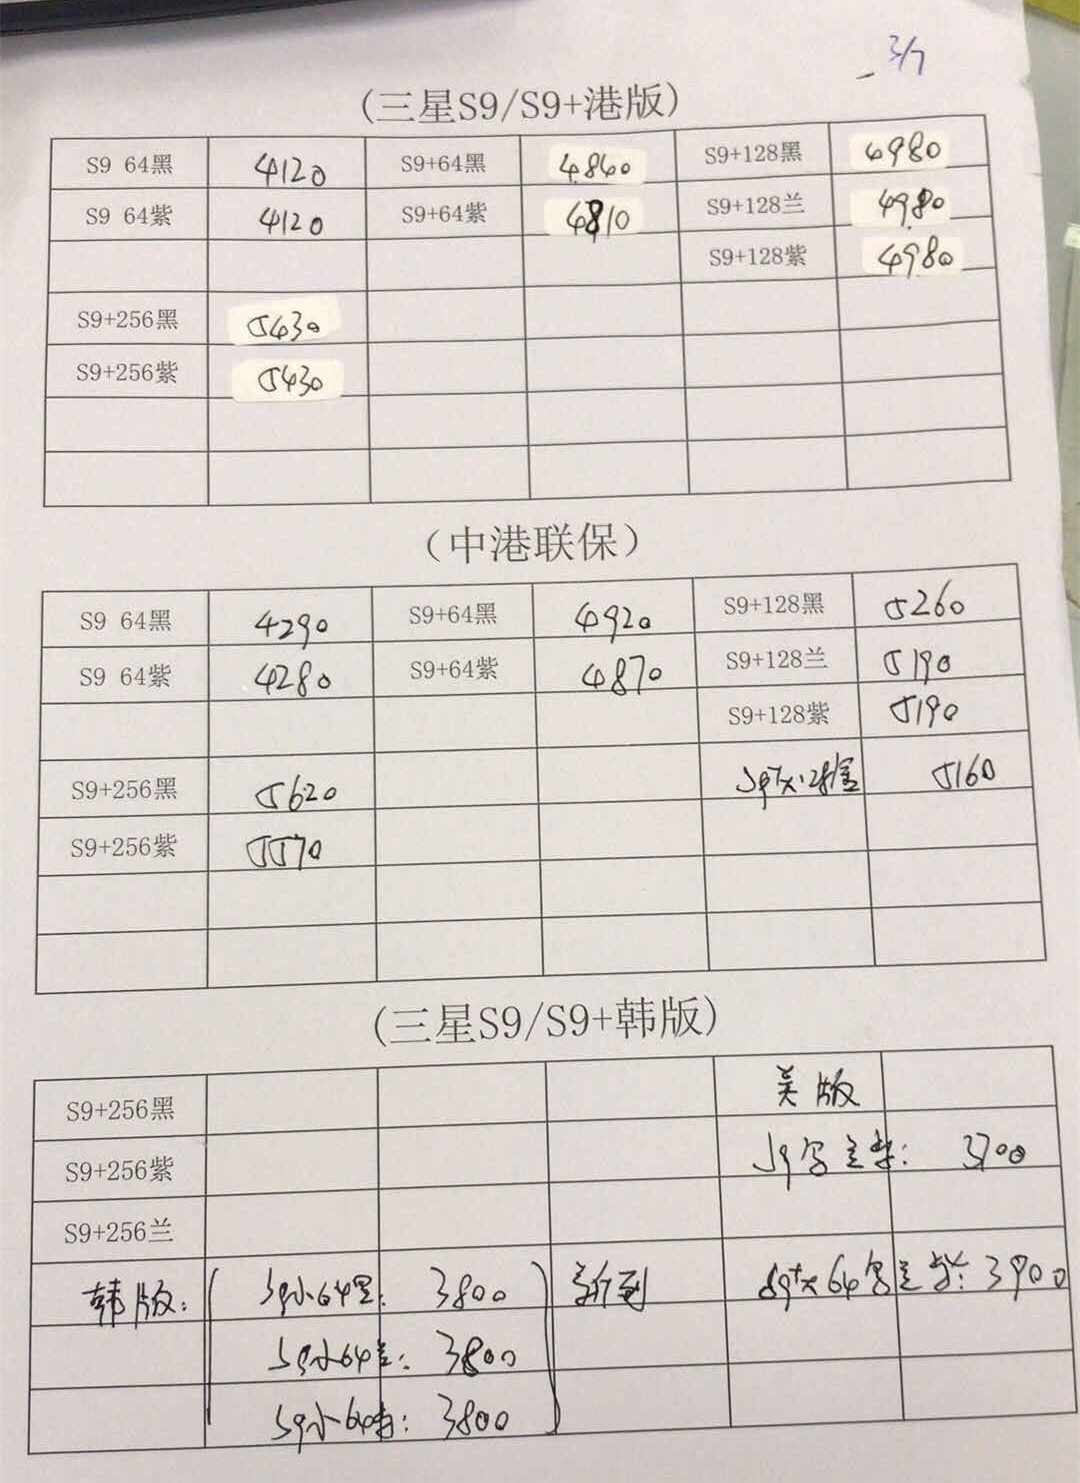 3/7
(三星S9/S9+港版)
S9 64黑 4120 S9+64黑 4860 S9+128黑 4980
S9 64紫 4120 S9+64紫 4810 S9+128兰 4980
S9+128紫 4980
S9+256黑 5430
S9+256紫 5430
(中港联保)
S9 64黑 4290 S9+64黑 4920 S9+128黑 5260
S9 64紫 4280 S9+64紫 4870 S9+128兰 5190
S9+128紫 5190
S9+256黑 5620 5160
S9+256紫 5570
(三星S9/S9+韩版)
S9+256黑 美版
S9+256紫 S9 3700
S9+256兰
韩版: S9小64黑: 3800 新到 S9+大64 3900
S9小64兰: 3800
S9小64紫: 3800